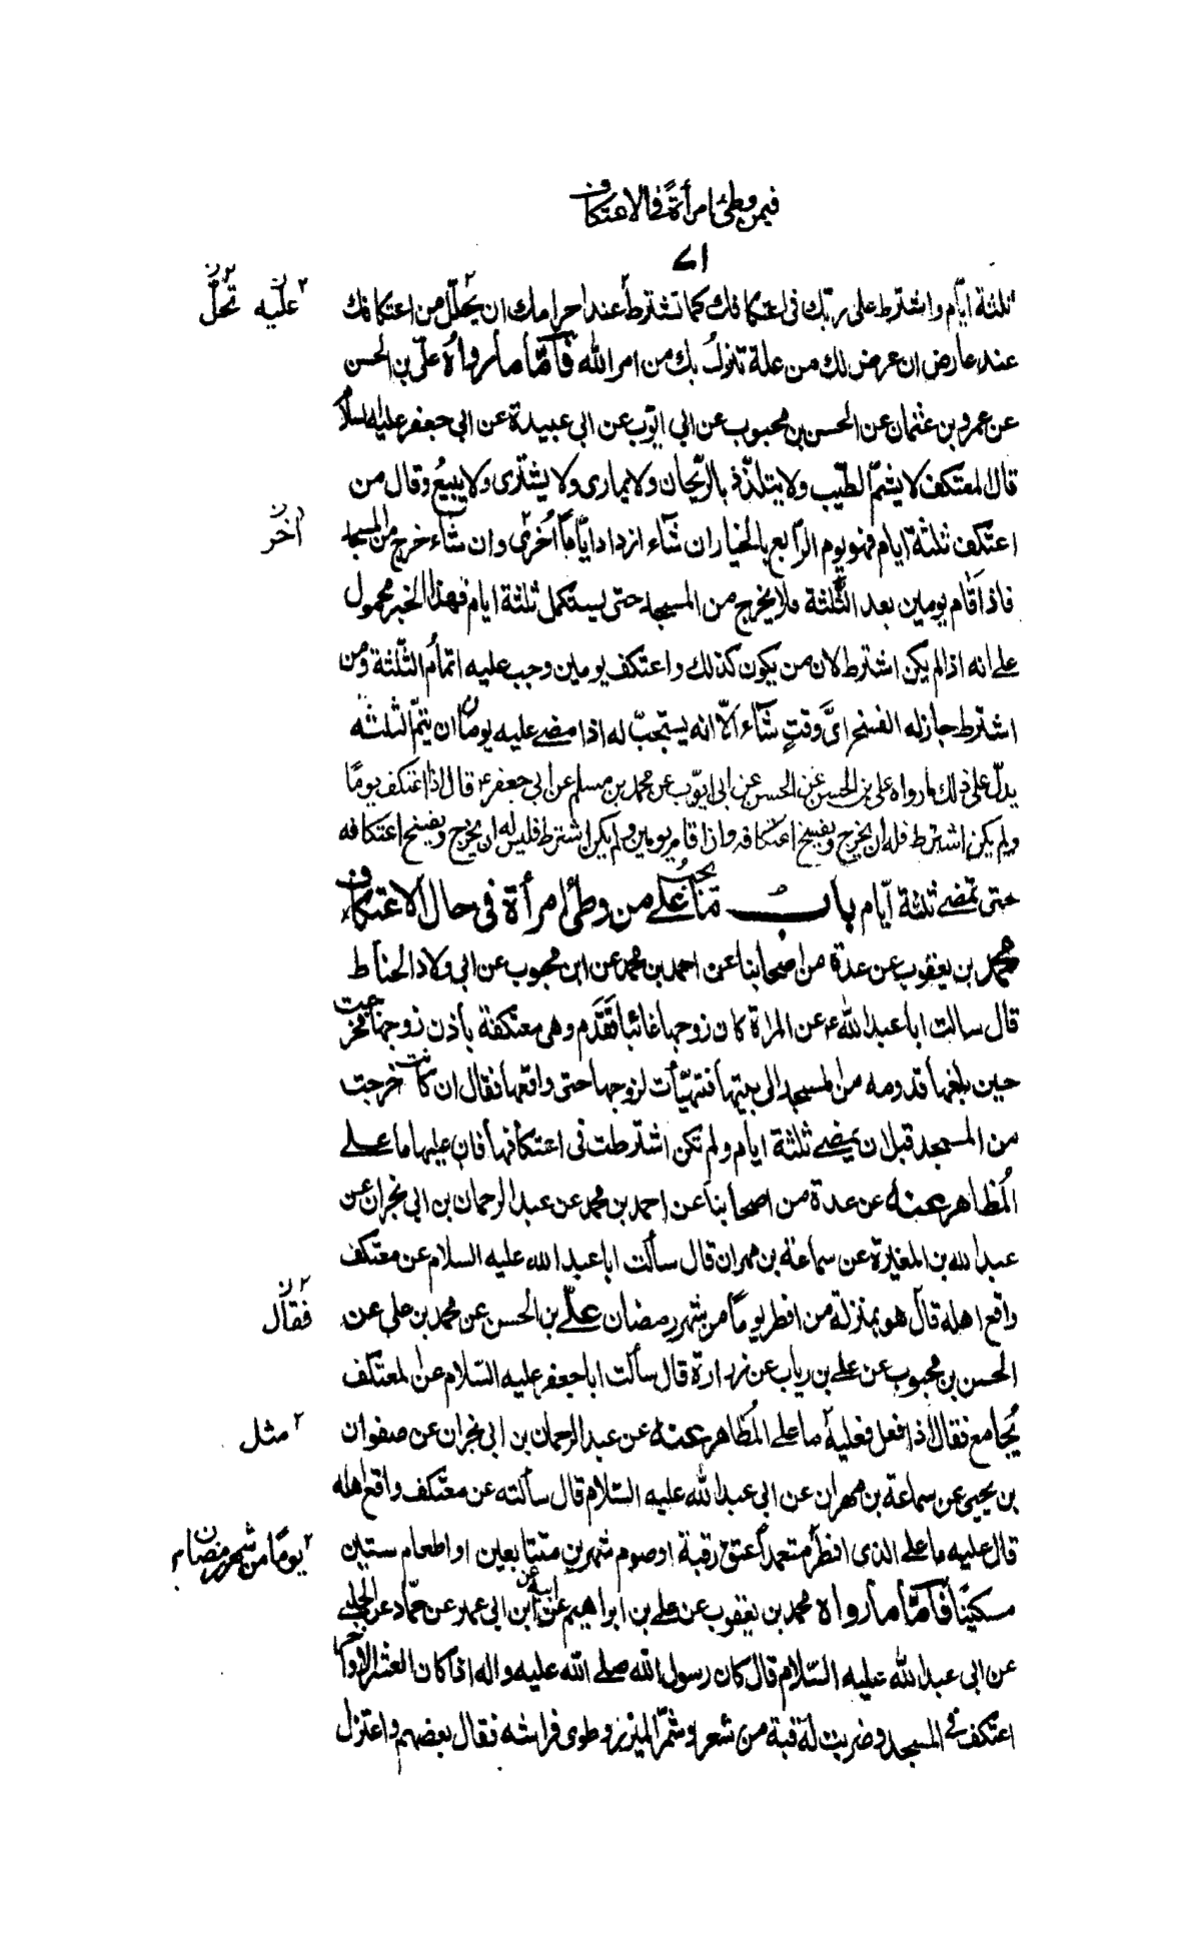 فيمن وطئ امرأة في الاعتكاف
٧١
ثلثة ايّام واشترط على ربّك في اعتكافك كما تشترط عند احرامك ان يحلّل من اعتكافك
عليه تحلّ
عند عارض ان عرض لك من علة تنزل بك من امر الله فأمّا ما رواه علىّ بن الحسن
عن عمرو بن عثمان عن الحسن بن محبوب عن ابي ايّوب عن ابي عبيدة عن ابي جعفر عليه السلام
قال المعتكف لا يشمّ الطّيب ولا يتلذّذ بالرّيحان ولا يمارى ولا يشترى ولا يبيع وقال من
اعتكف ثلثة ايام فهو يوم الرّابع بالخيار ان شآء ازداد ايّاماً اُخرى وان شآء خرج من المسجد
اُخر
فاذا قام يومين بعد الثّلثة فلا يخرج من المسجد حتى يستكمل ثلثة ايام فهذا الخبر محمول
على انه اذا لم يكن اشترط لان من يكون كذلك واعتكف يومين وجب عليه اتمام الثّلثة ومن
اشترط جاز له الفسخ اىَّ وقتٍ شآء الّا انه يستحبّ له اذا مضى عليه يومان ان يتمّ الثلثة
يدلّ على ذلك ما رواه على بن الحسن عن الحسن عن ابي ايّوب عن محمد بن مسلم عن ابي جعفر ع قال اذا اعتكف يومًا
ولم يكن اشترط فله ان يخرج ويفسخ اعتكافه وان اقام يومين ولم يكن اشترط فليس له ان يخرج ويفسخ اعتكافه
حتى تمضى ثلثة ايّام باب ما يجب على من وطئ امرأة في حال الاعتكاف
محمد بن يعقوب عن عدة من اصحابنا عن احمد بن محمد عن ابن محبوب عن ابي ولاد الحناط
قال سالت ابا عبد الله ع عن المراة كان زوجها غائبا فقدم وهى معتكفة بأذن زوجها فخرجت
حين بلغها قدومه من المسجد الى بيتها فتهيّأت لزوجها حتى واقعها فقال ان كانت خرجت
من المسجد قبل ان يمضى ثلثة ايام ولم تكن اشترطت في اعتكافها فان عليها ما على
المُظاهر عنه عن عدة من اصحابنا عن احمد بن محمد عن عبد الرحمان بن ابي نجران عن
عبد الله بن المغيرة عن سماعة بن مهران قال سألت ابا عبد الله عليه السلام عن معتكف
واقع اهله قال هو بمنزلة من افطر يوماً من شهر رمضان علىّ بن الحسن عن محمد بن على عن
فقال
الحسن بن محبوب عن على بن رياب عن زرارة قال سألت ابا جعفر عليه السّلام عن المعتكف
يُجامع فقال اذا فعل فعليه ما على المُظاهر عنه عن عبد الرحمان بن ابي نجران عن صفوان
مثل
بن يحيى عن سماعة بن مهران عن ابي عبد الله عليه السّلام قال سألته عن معتكف واقع اهله
قال عليه ما على الذى افطر متعمداً عتق رقبة او صوم شهرين متتابعين او اطعام ستين
يومًا من شهر رمضان
مسكينًا فأمّا ما رواه محمد بن يعقوب عن على بن ابراهيم عن ابيه عن ابن ابي عمير عن حمّاد عن الحلبى
عن ابي عبد الله عليه السّلام قال كان رسول الله صلى الله عليه واله اذا كان العشر الاواخر
اعتكف في المسجد وضربت له قبة من شعر وشمّر الميزر وطوى فراشه فقال بعضهم واعتزل